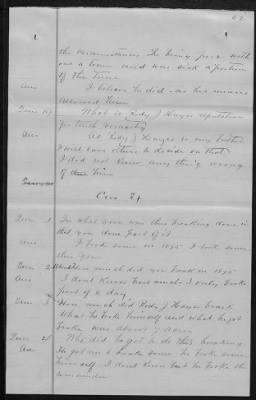 the circumstances He being poor with
out a team and was sick a portion
of the time
Ans I believe he did as his means
allowed him
Ques 10 What is Kirby J Hayes reputation
for truth veracity
Ans As Kirby J Hayes is my brother
I will leave others to decide on that
I did not know any thing wrong
of him
Cros Ex
Ques 1 In what year was this breaking done in
that you done part of it
Ans I broke some in 1895 I broke some
this year
Ques 2 How much did you break in 1895
Ans I dont know how much I only broke
part of a day
Ques 3 How much did Kirby J Hayes break
what he broke himself and what he got
broke was about 7 acres
Ques 4 Who did he get to do this breaking
Ans He got me to brake some he broke some
himself I dont know who he broke the
remainder